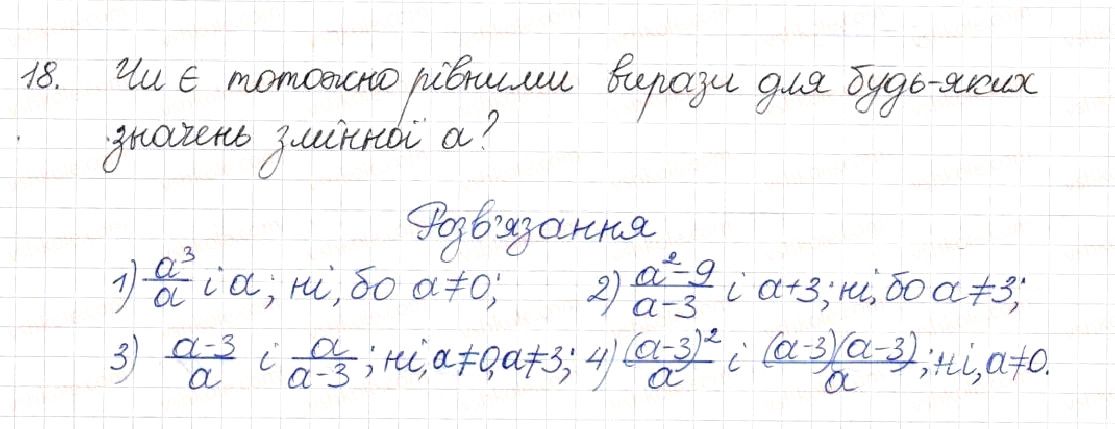 18. Чи є тотожно рівними вирази для будь-яких
значень змінної а?
Розв'язання
1) a³/a і a; ні, бо a≠0; 2) (a²-9)/(a-3) і a+3; ні, бо a≠3;
3) (a-3)/a і a/(a-3); ні, a≠0, a≠3; 4) (a-3)²/a і (a-3)(a-3)/a; ні, a≠0.